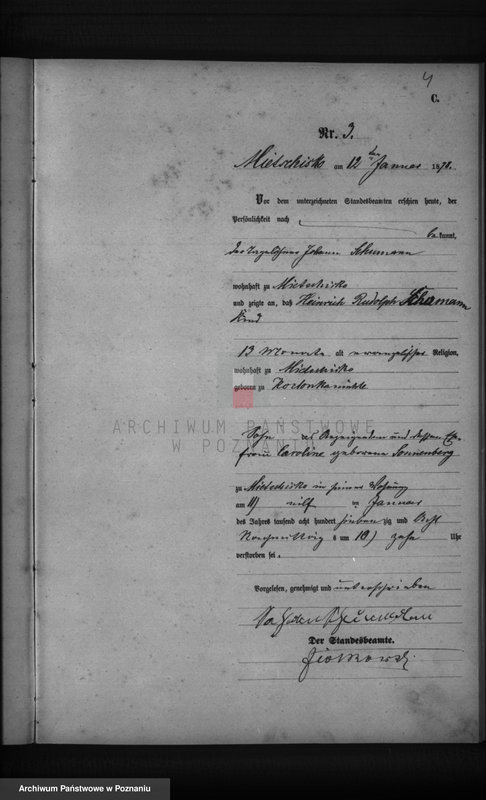 4
C.
Nr. 3.
Mietschisko am 12 ten Januar 1878.
Vor dem unterzeichneten Standesbeamten erschien heute, der
Persönlichkeit nach
bekannt,
der Tagelöhner Johann Schumann
wohnhaft zu Mietschisko
und zeigte an, daß Heinrich Rudolph Schumann
Kind
13 Monate alt evangelischer Religion,
wohnhaft zu Mietschisko
geboren zu
ARCHIWUM PAŃSTWOWE
W POZNANIU
Sohn des Anzeigenden und dessen Ehe-
frau Caroline geborene Sonnenberg
zu Mietschisko in seiner Wohnung
am 11) elf ten Januar
des Jahres tausend acht hundert siebenzig und Acht
Nachmittags um 10) zehn Uhr
verstorben sei.
Vorgelesen, genehmigt und unterschrieben
Der Standesbeamte.
Archiwum Państwowe w Poznaniu